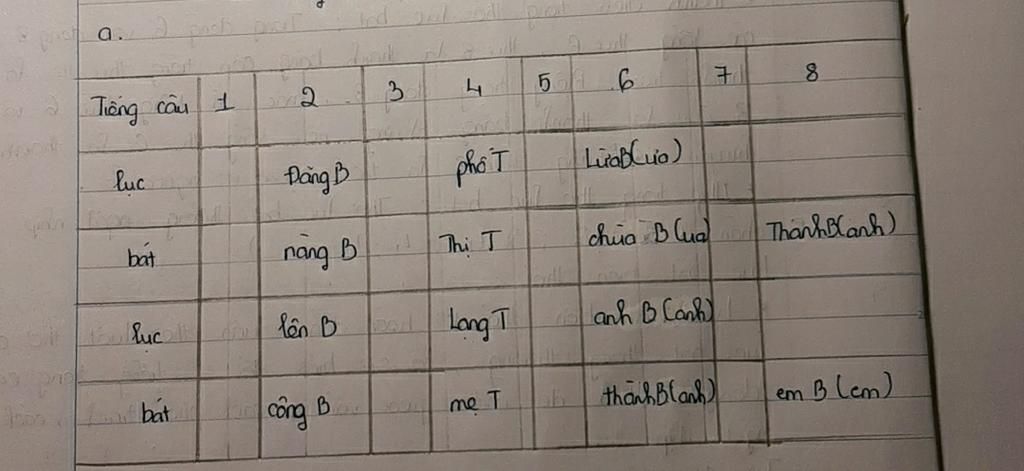 a.
Tiếng câu 1 2 3 4 5 6 7 8
lục Đăng B phố T LừaB(ưa)
bát nàng B Thị T chùa B (ua) ThanhB(anh)
lục lên B Lạng T anh B (anh)
bát công B mẹ T thànhB(anh) em B (em)